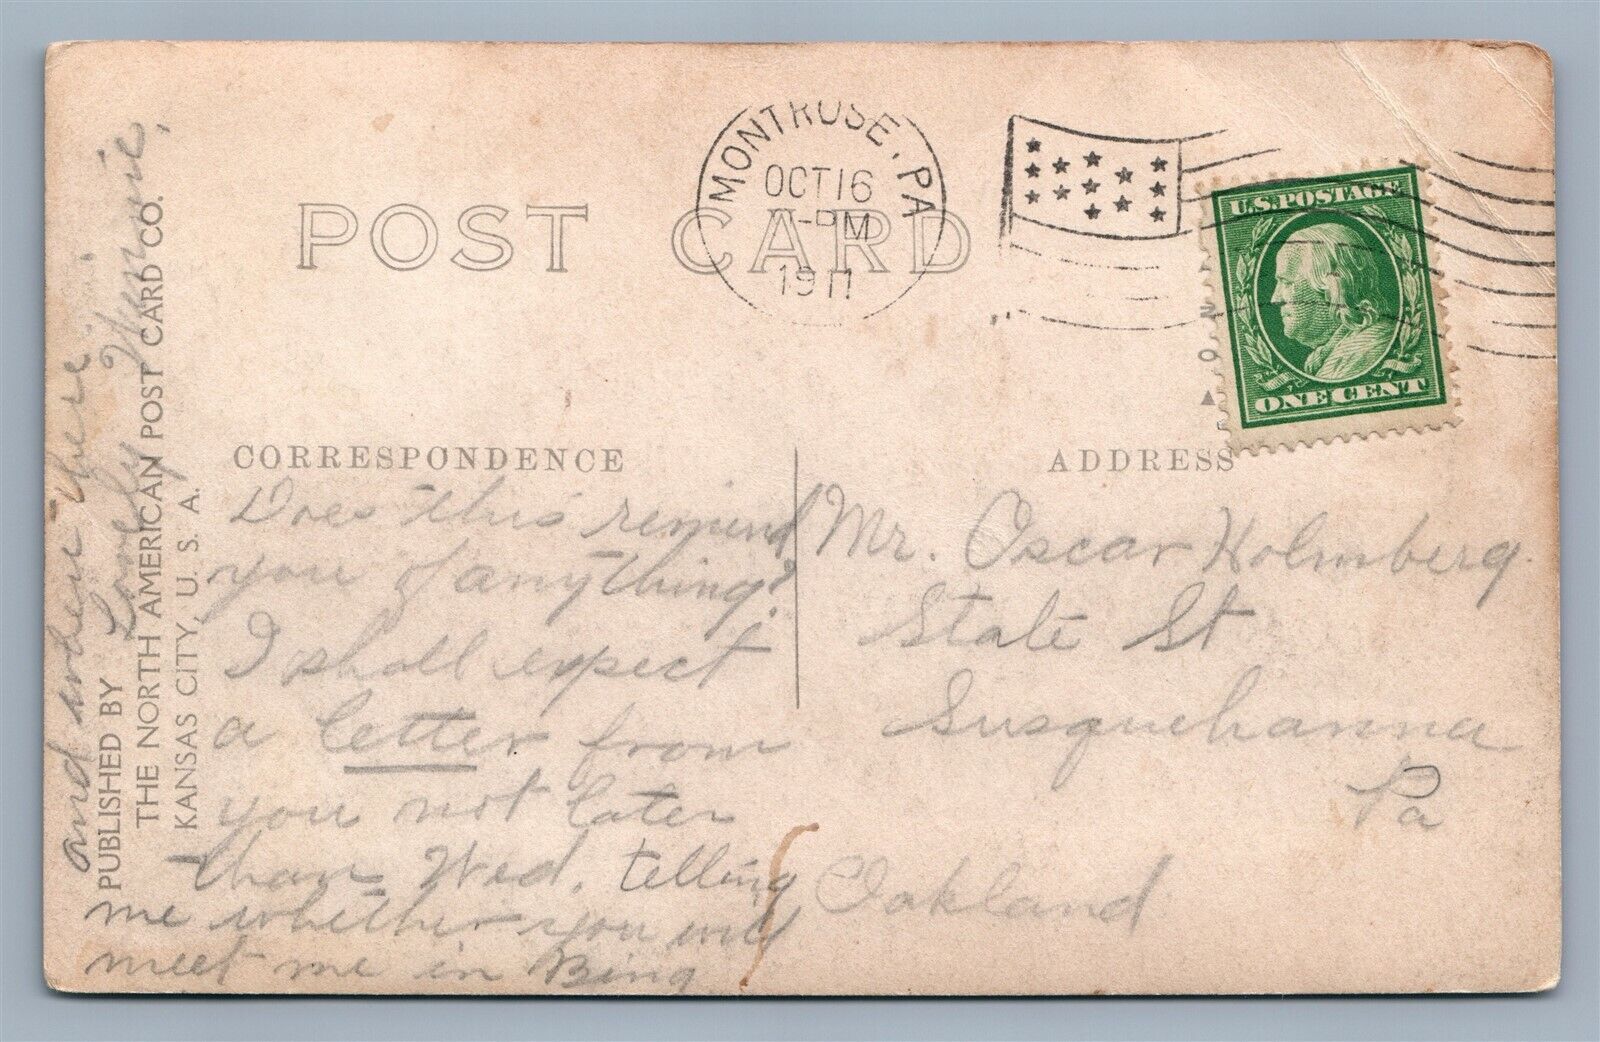 POST CARD
MONTROSE, PA
OCT 16
-PM
1911
U.S. POSTAGE
ONE CENT
CORRESPONDENCE
ADDRESS
Does this remind
you of anything?
I shall expect
a letter from
you not later
than Wed. telling
me whether you will
meet me in Bing
and when & where.
Lonely
Mr. Oscar Holmberg.
State St
Susquehanna
Pa
Oakland
PUBLISHED BY
THE NORTH AMERICAN POST CARD CO.
KANSAS CITY, U. S. A.